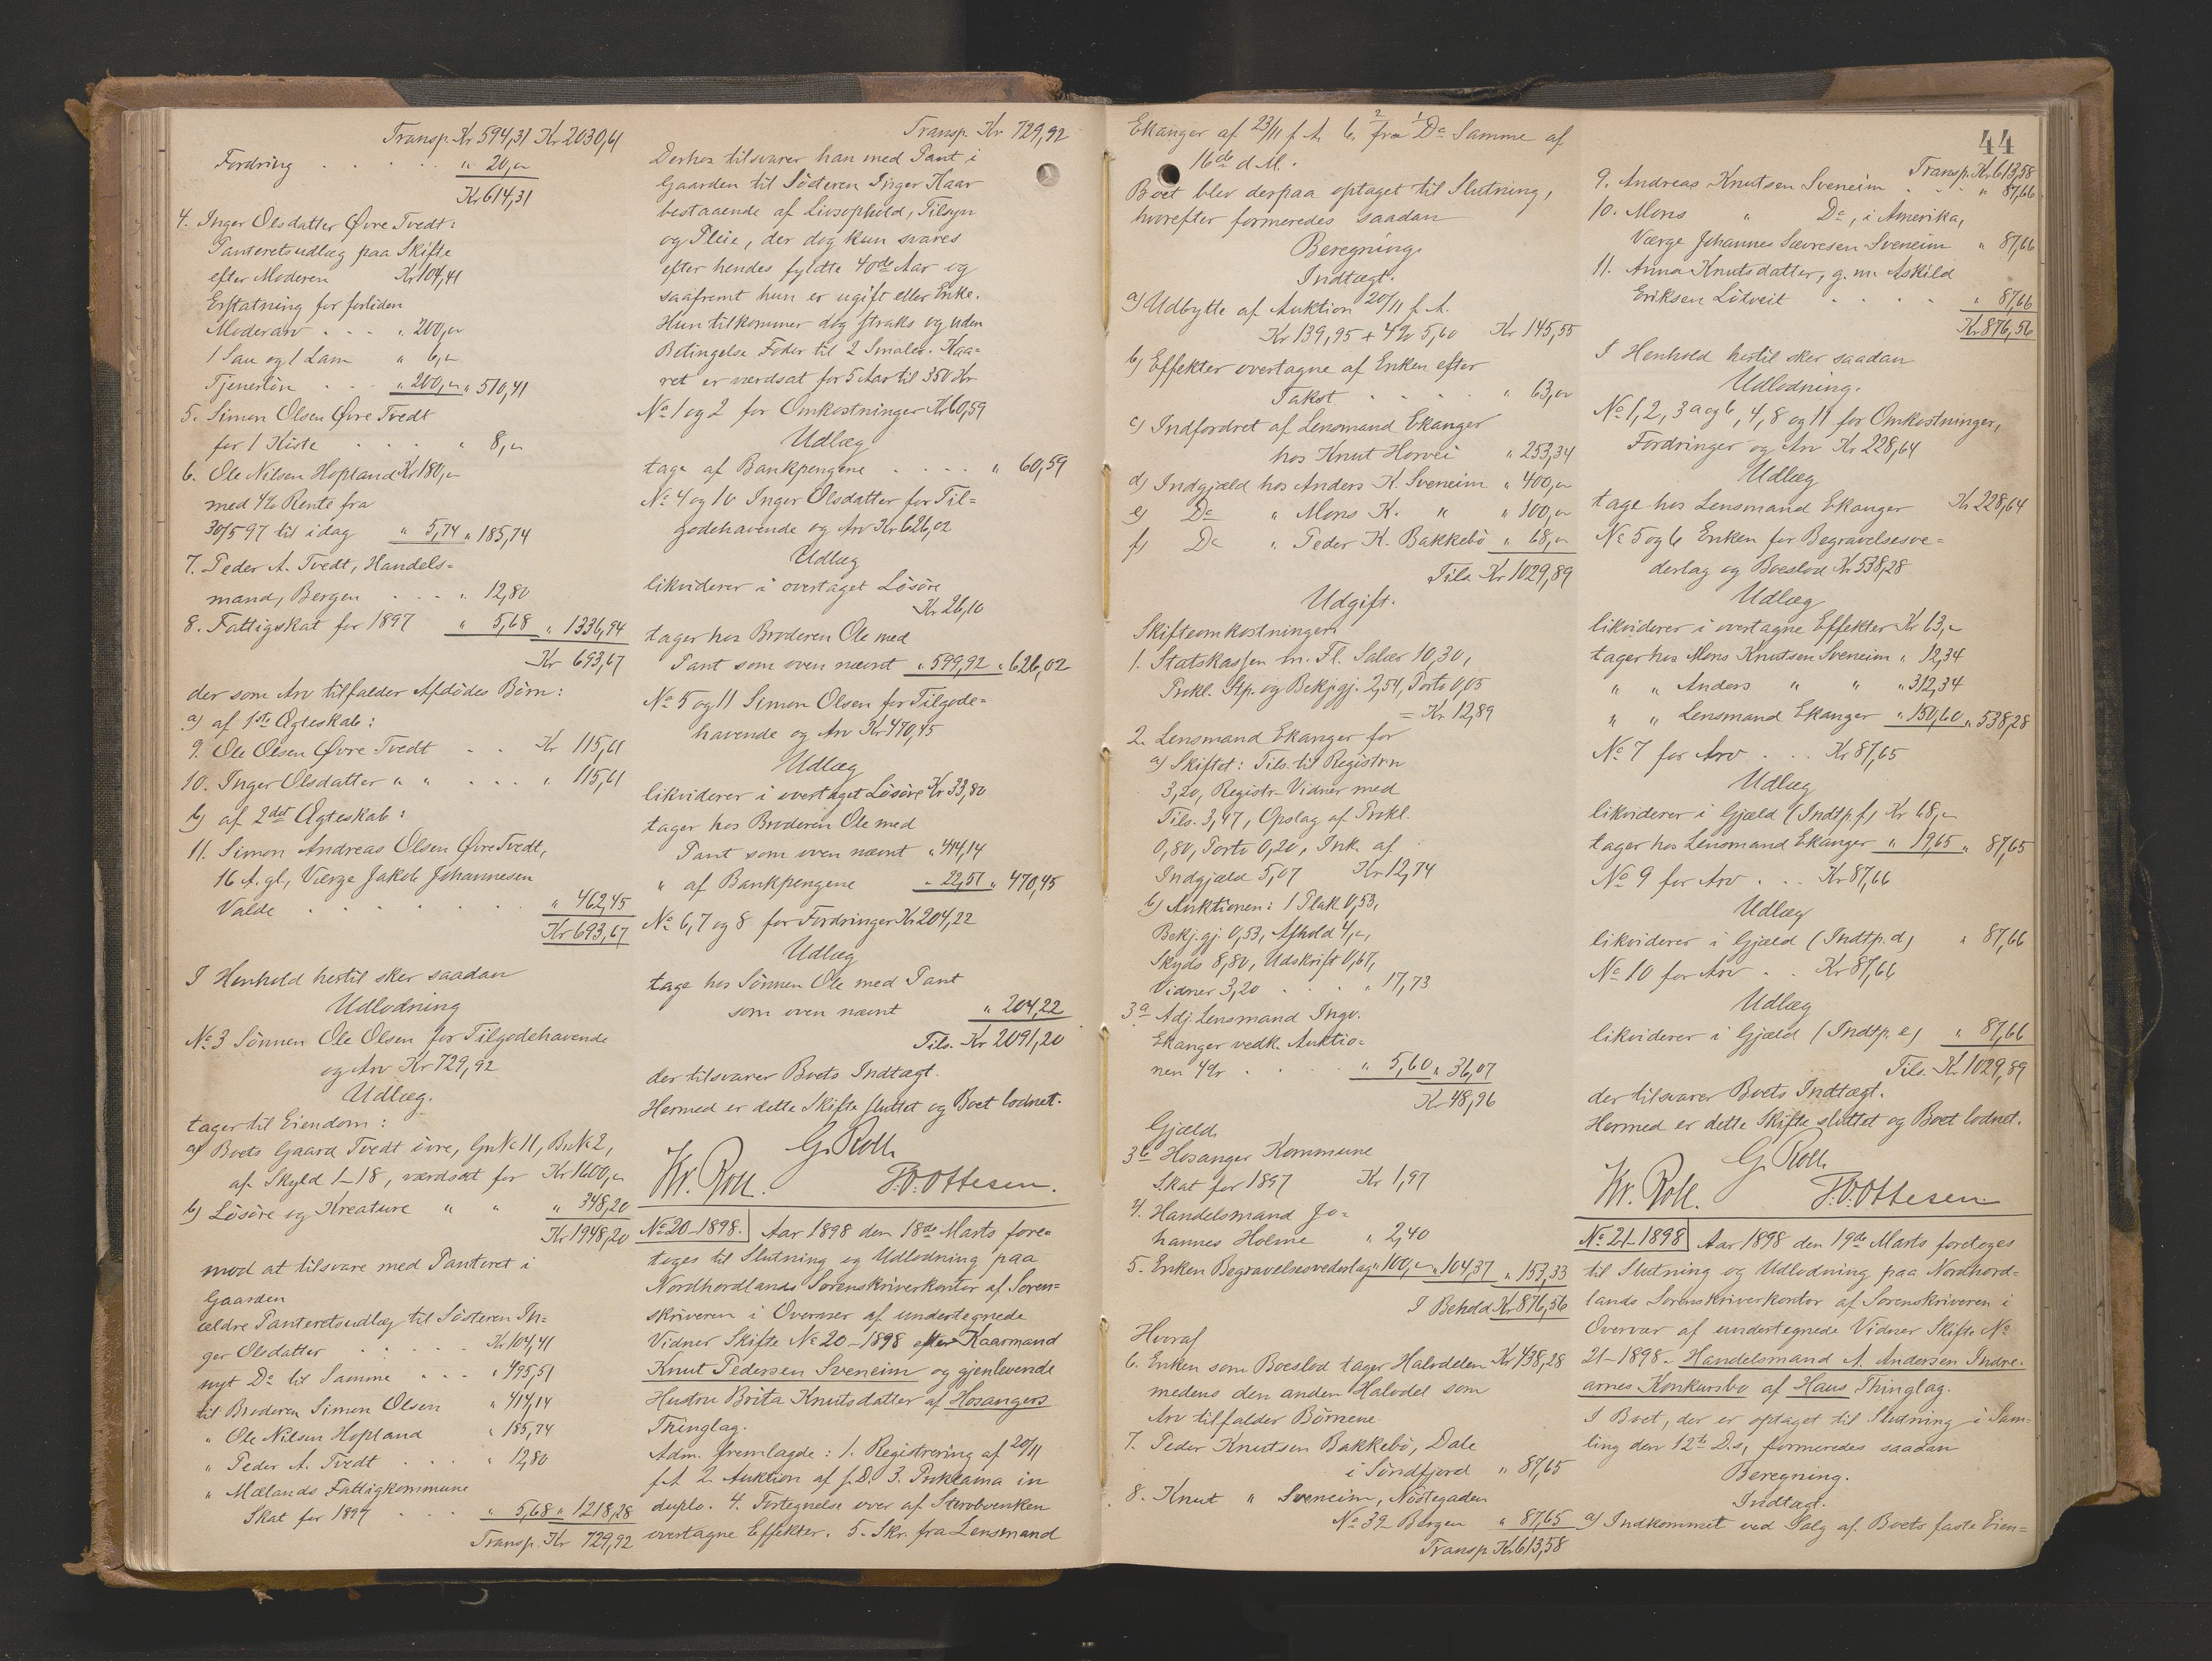 Transp. Kr 594,31 Kr 2030,61
Fordring . . . . . " 20,"
Kr 614,31
4. Inger Olsdatter Øvre Tvedt:
Panteretsudlæg paa Skifte
efter Moderen Kr 104,41
Erstatning for forliden
Moderarv . . . " 200,"
1 Sau og 1 Lam " 6,"
Tjenerløn . . . " 200," " 510,41
5. Simon Olsen Øvre Tvedt
for 1 Kiste . . . . " 8,"
6. Ole Nilsen Hopland Kr 180,"
med 4% Rente fra
30/5 97 til idag " 5,74 " 185,74
7. Peder A. Tvedt, Handels=
mand, Bergen . . . " 12,80
8. Fattigskat for 1897 " 5,68 " 1336,94
Kr 693,67
der som Arv tilfalder Afdødes Børn:
a) af 1ste Ægteskab:
9. Ole Olsen Øvre Tvedt . . Kr 115,61
10. Inger Olsdatter " " . . . . " 115,61
b) af 2det Ægteskab:
11. Simon Andreas Olsen Øvre Tvedt,
16 A. gl., Værge Jakob Johannesen
Valde . . . . . . . " 462,45
Kr 693,67
I Henhold hertil sker saadan
Udlodning
No 3 Sønnen Ole Olsen for Tilgodehavende
og Arv Kr 729,92
Udlæg.
tager til Eiendom:
a) Boets Gaard Tvedt øvre, GNo 11, BNo 2,
af Skyld 1-18, værdsat for Kr 1600,"
b) Løsøre og Kreature " " " 348,20
Kr 1948,20
mod at tilsvare med Panteret i
Gaarden
ældre Panteretsudlæg til Søsteren In=
ger Olsdatter . . . . . Kr 104,41
nyt Do til Samme . . . " 495,51
til Broderen Simon Olsen " 414,14
" Ole Nilsen Hopland " 185,74
" Peder A. Tvedt . . . " 12,80
" Mælands Fattigkommune
Skat for 1897 . . . " 5,68 " 1218,28
Transp. Kr 729,92
Transp. Kr 729,92
Derhos tilsvarer han med Pant i
Gaarden til Søsteren Inger Kaar
bestaaende af Livsophold, Tilsyn
og Pleie, der dog kun svares
efter hendes fyldte 40de Aar og
saafremt hun er ugift eller Enke.
Hun tilkommer dog straks og uden
Betingelse Foder til 2 Smaler. Kaa=
ret er værdsat for 5 Aar til 350 Kr.
No 1 og 2 for Omkostninger Kr 60,59
Udlæg
tage af Bankpengene . . . . " 60,59
No 4 og 10 Inger Olsdatter for Til=
godehavende og Arv Kr 626,02
Udlæg
likviderer i overtaget Løsøre
Kr 26,10
tager hos Broderen Ole med
Pant som oven nævnt " 599,92 " 626,02
No 5 og 11 Simon Olsen for Tilgode=
havende og Arv Kr 470,45
Udlæg
likviderer i overtaget Løsøre Kr 33,80
tager hos Broderen Ole med
Pant som oven nævnt " 414,14
" af Bankpengene " 22,51 " 470,45
No 6, 7 og 8 for Fordringer Kr 204,22
Udlæg
tage hos Sønnen Ole med Pant
som oven nævnt " 204,22
Tils. Kr 2091,20
der tilsvarer Boets Indtægt.
Hermed er dette Skifte sluttet og Boet lodnet.
G. Roll.
Kr. Roll. P. O. Ottesen.
No 20-1898. Aar 1898 den 18de Marts fore=
toges til Slutning og Udlodning paa
Nordhordlands Sorenskriverkontor af Soren=
skriveren i Overvær af undertegnede
Vidner Skifte No 20-1898 efter Kaarmand
Knut Pedersen Sveneim og gjenlevende
Hustru Brita Knutsdatter af Hosangers
Thinglag.
Adm. fremlagde: 1. Registrering af 20/11
f. A. 2. Auktion af s. D. 3. Proklama in
duplo. 4. Fortegnelse over af Stervboenken
overtagne Effekter. 5. Skr. fra Lensmand
Ekanger af 23/11 f. A. 6. 2 fra 1 Do Samme af
16de d M.
Boet blev derpaa optaget til Slutning,
hvorefter formeredes saadan
Beregning.
Indtægt.
a) Udbytte af Auktion 20/11 f. A.
Kr 139,95 + 4% 5,60 Kr 145,55
b) Effekter overtagne af Enken efter
Takst . . . . . " 63,"
c) Indfordret af Lensmand Ekanger
hos Knut Horvei " 253,34
d) Indgjæld hos Anders K. Sveneim " 400,"
e) Do " Mons K. " " 100,"
f) Do " Peder K. Bakkebø " 68,"
Tils. Kr 1029,89
Udgift.
Skifteomkostninger.
1. Statskassen m. Fl. Salær 10,30,
Prokl. Stp. og Bekj.gj. 2,54, Porto 0,05
= Kr 12,89
2. Lensmand Ekanger for
a) Skiftet: Tils. til Registrn
3,20, Registr-Vidner med
Tils. 3,47, Opslag af Prokl.
0,80, Porto 0,20, Ink. af
Indgjæld 5,07 Kr 12,74
b) Auktionen: 1 Plak 0,53,
Bekj.gj. 0,53, Afhold 4,",
Skyds 8,80, Udskrift 0,67,
Vidner 3,20 . . . . " 17,73
3a Adj. Lensmand Ingv.
Ekanger vedk. Auktio=
nen 4% . . . . " 5,60 " 36,07
Kr 48,96
Gjæld.
3b Hosanger Kommune
Skat for 1897 Kr 1,97
4. Handelsmand Jo=
hannes Holme " 2,40
5. Enken Begravelsesvederlag " 100," " 104,37 " 153,33
I Behold Kr 876,56
Hvoraf
6. Enken som Boeslod tager Halvdelen Kr 438,28
medens den anden Halvdel som
Arv tilfalder Børnene
7. Peder Knutsen Bakkebø, Dale
i Søndfjord " 87,65
8. Knut " Sveneim, Nøstegaden
No 39 Bergen " 87,65
Transp. Kr 613,58
44
Transp. Kr 613,58
9. Andreas Knutsen Sveneim . . . " 87,66
10. Mons " Do, i Amerika,
Værge Johannes Sævresen Sveneim " 87,66
11. Anna Knutsdatter, g. m. Askild
Eriksen Litveit . . . . " 87,66
Kr 876,56
I Henhold hertil sker saadan
Udlodning.
No 1, 2, 3 a og b, 4, 8 og 11 for Omkostninger,
Fordringer og Arv Kr 228,64
Udlæg
tage hos Lensmand Ekanger Kr 228,64
No 5 og 6 Enken for Begravelsesve=
derlag og Boeslod Kr 538,28
Udlæg
likviderer i overtagne Effekter Kr 63,"
tager hos Mons Knutsen Sveneim " 12,34
" " Anders " " " 312,34
" " Lensmand Ekanger " 150,60 " 538,28
No 7 for Arv . . . Kr 87,65
Udlæg
likviderer i Gjæld (Indtp. f) Kr 68,"
tager hos Lensmand Ekanger " 19,65 " 87,65
No 9 for Arv . . . Kr 87,66
Udlæg
likviderer i Gjæld (Indtp. d) " 87,66
No 10 for Arv . . Kr 87,66
Udlæg
likviderer i Gjæld (Indtp. e) " 87,66
Tils. Kr 1029,89
der tilsvarer Boets Indtægt.
Hermed er dette Skifte sluttet og Boet lodnet.
G. Roll.
Kr. Roll. P. O. Ottesen.
No 21-1898 Aar 1898 den 19de Marts foretoges
til Slutning og Udlodning paa Nordhord=
lands Sorenskriverkontor af Sorenskriveren i
Overvær af undertegnede Vidner Skifte No
21-1898 - Handelsmand A. Andersen Indre=
arnes Konkursbo af Haus Thinglag.
I Boet, der er optaget til Slutning i Sam=
ling den 12te d.s., formeredes saadan
Beregning.
Indtægt.
a) Indkommet ved Salg af Boets faste Eien=